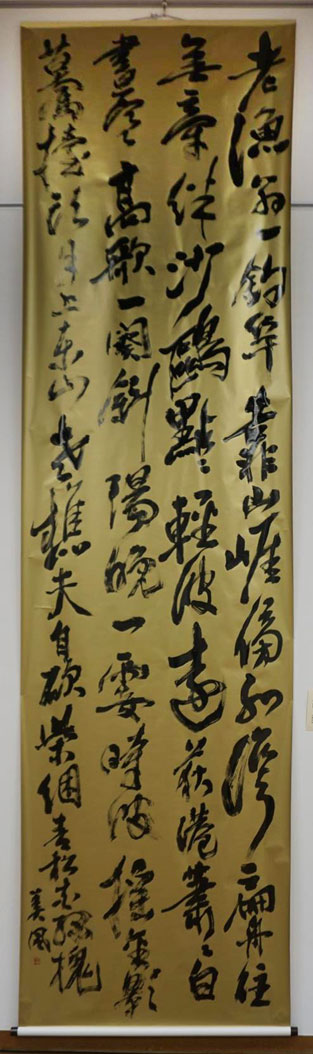 老漁翁一釣竿靠山崖傍水灣扁舟往
無牽絆沙鷗點々輕波遠荻港蕭々白
晝寒高歌一闋斜陽晚一霎時波搖金影
驀擡頭月上東山老樵夫自砍柴捆青松夾綠槐